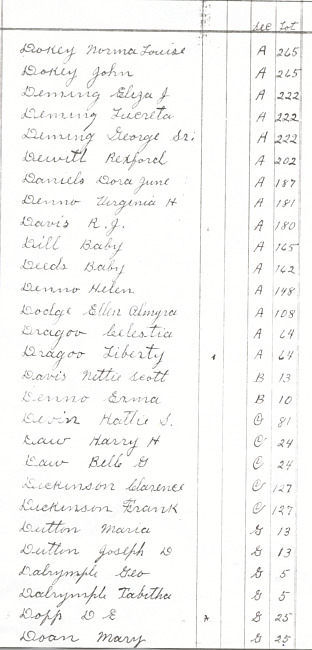 Sec Lot
Dokey Norma Louise A 265
Dokey John A 265
Deming Eliza J A 222
Deming Lucreta A 222
Deming George Sr. A 222
Dewitt Rexford A 202
Daniels Dora June A 187
Denno Virginia H A 181
Davis R. J. A 180
Dill Baby A 165
Deeds Baby A 162
Denno Helen A 148
Dodge Ellen Almyra A 108
Dragoo Celestia A 64
Dragoo Liberty A 64
Davis Nettie Scott B 13
Denno Erma B 10
Devin Hattie S. C 81
Daw Harry H C 24
Daw Belle G C 24
Dickinson Clarence C 127
Dickinson Frank C 127
Dutton Maria G 13
Dutton Joseph D G 13
Dalrymple Geo G 5
Dalrymple Tabitha G 5
Dopp D E G 25
Doan Mary G 25